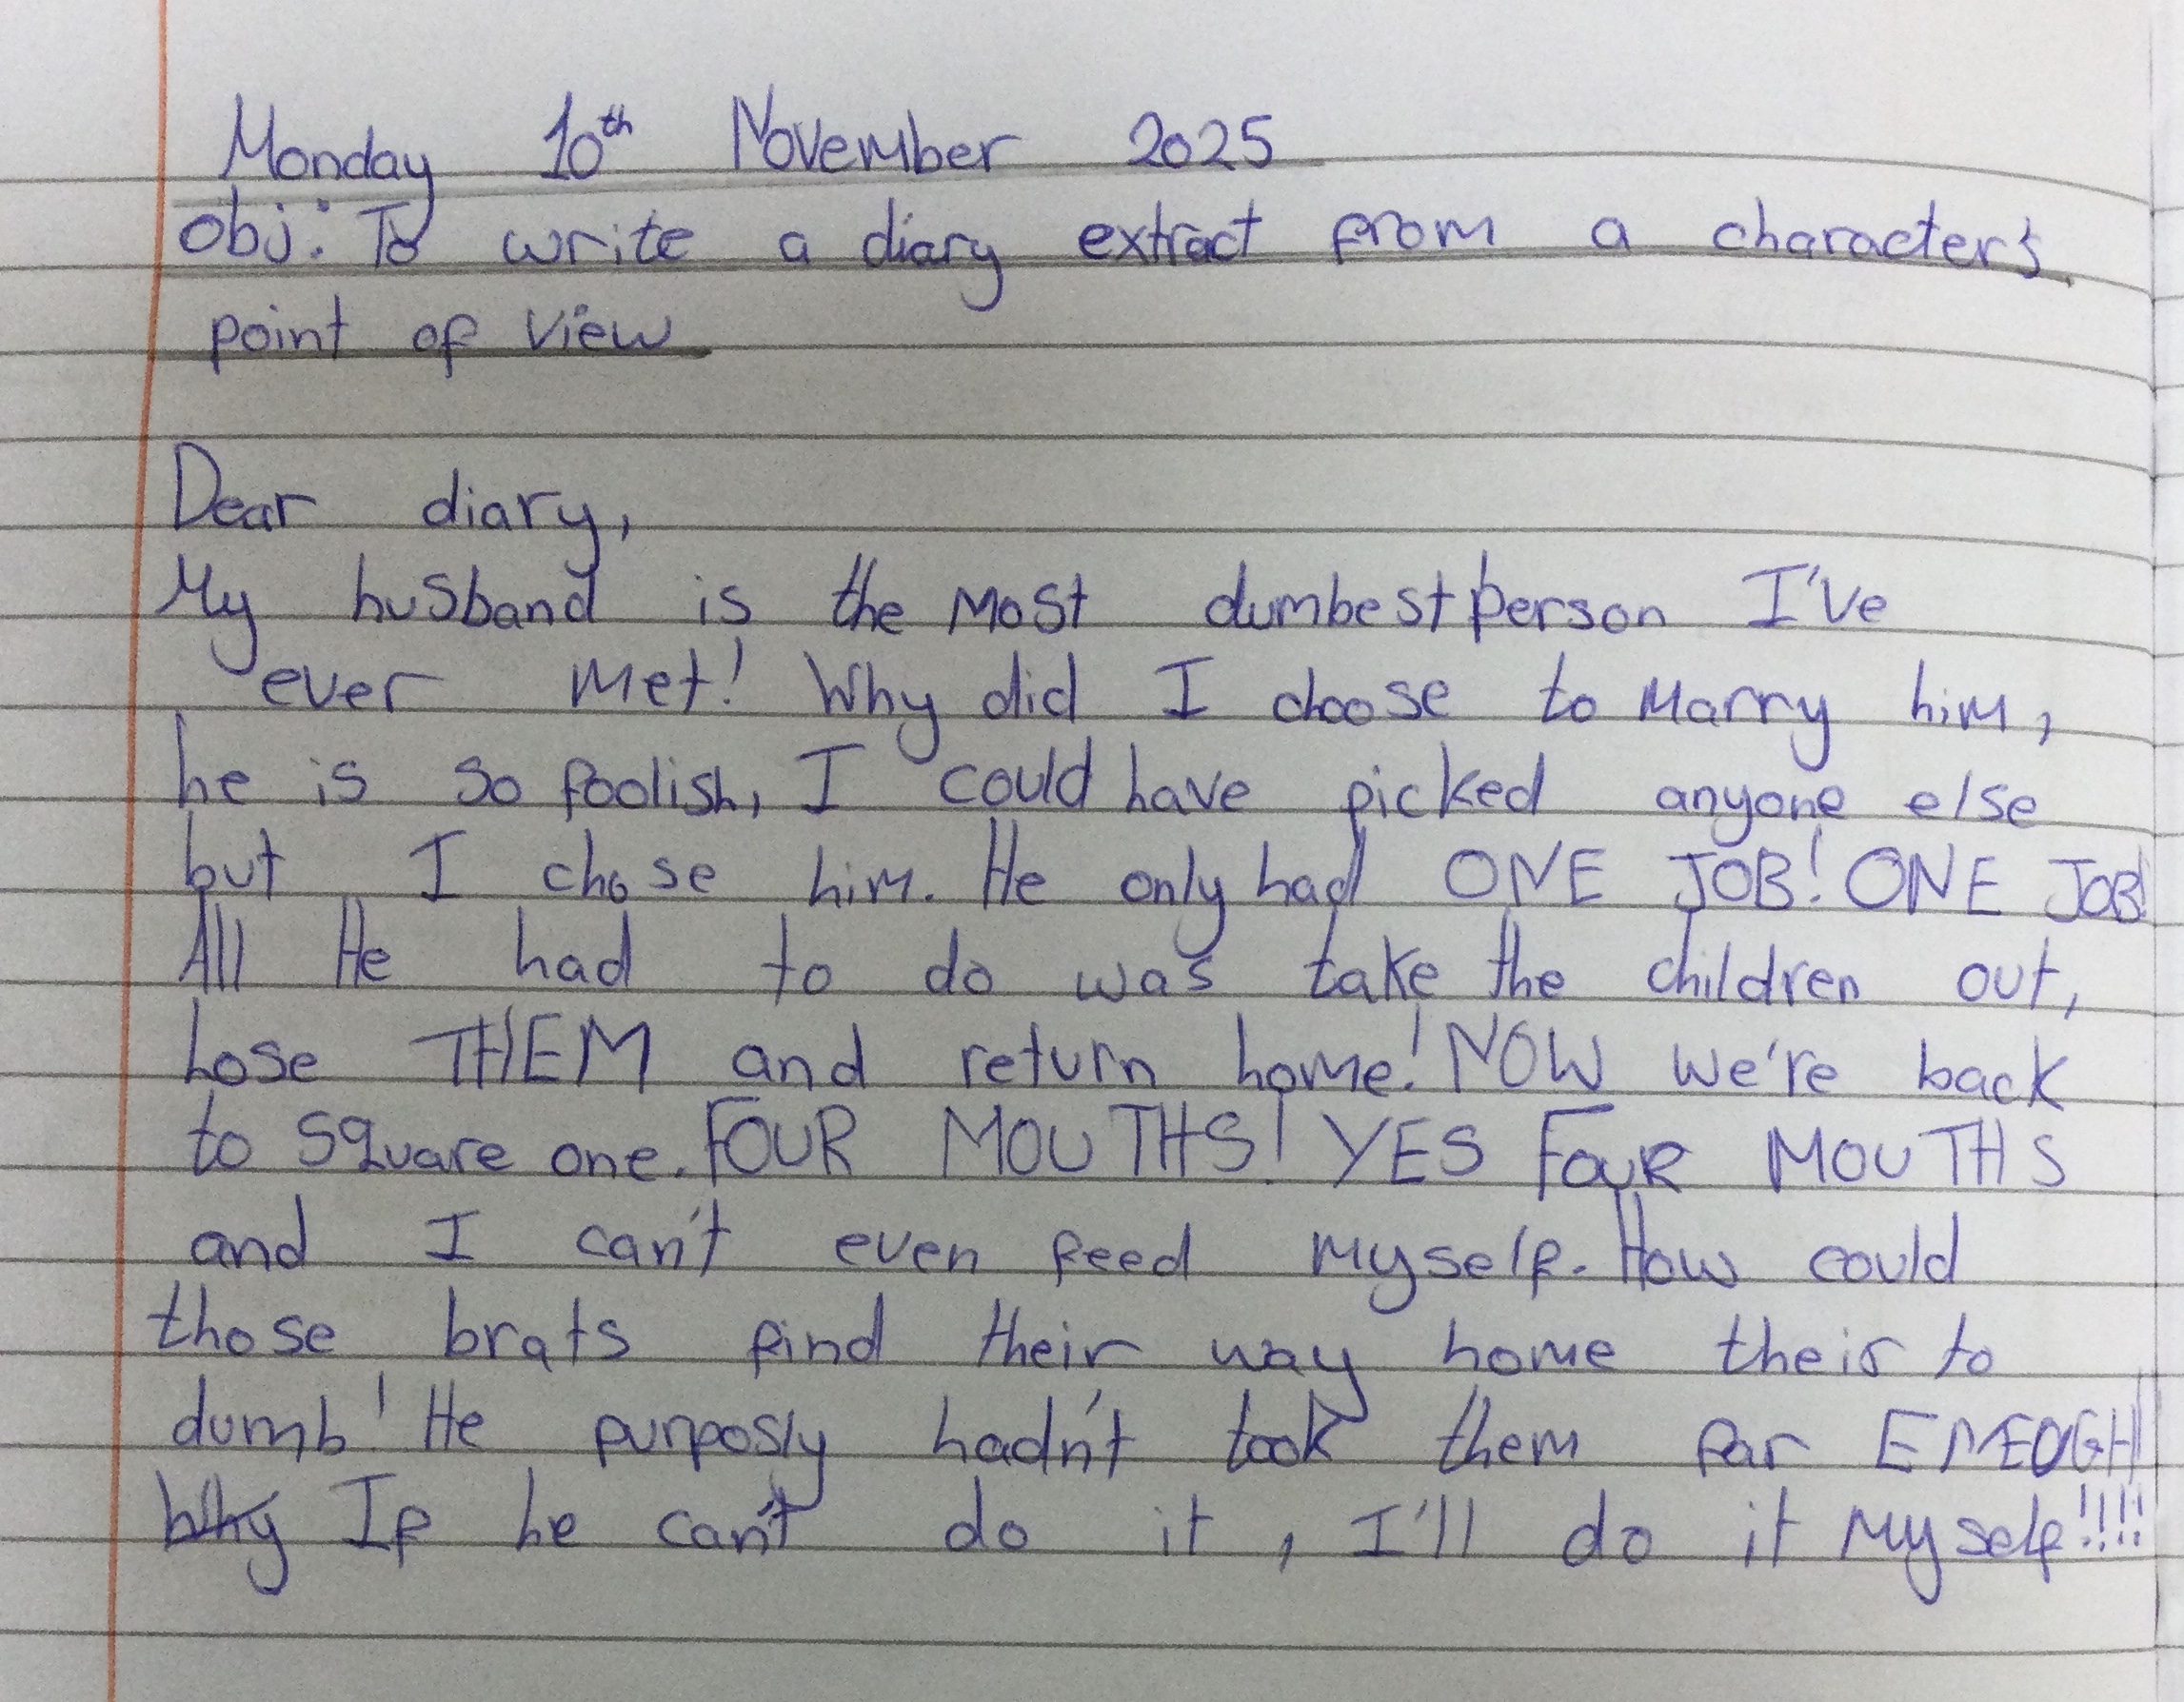 Monday 10th November 2025
obj: To write a diary extract from a character's
point of view
Dear diary,
My husband is the most dumbest person I've
ever met! Why did I choose to marry him,
he is so foolish, I could have picked anyone else
but I chose him. He only had ONE JOB! ONE JOB!
All He had to do was take the children out,
Lose THEM and return home! NOW we're back
to square one. FOUR MOUTHS! YES FOUR MOUTHS
and I can't even feed myself. How could
those brats find their way home their to
dumb! He purposly hadn't took them far ENEOGH!
Why If he can't do it, I'll do it myself!!!!